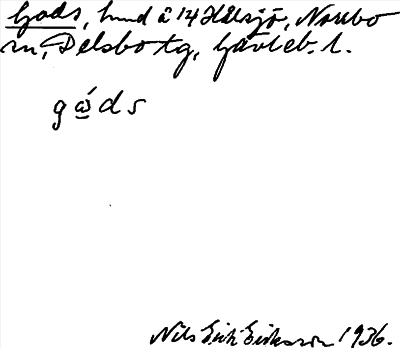 Gods, hund å 14 Hålsjö, Norrbo
sn, Delsbo tg, Gävleb. l.
gώ̣ds
Nils Erik Eriksson 1936.